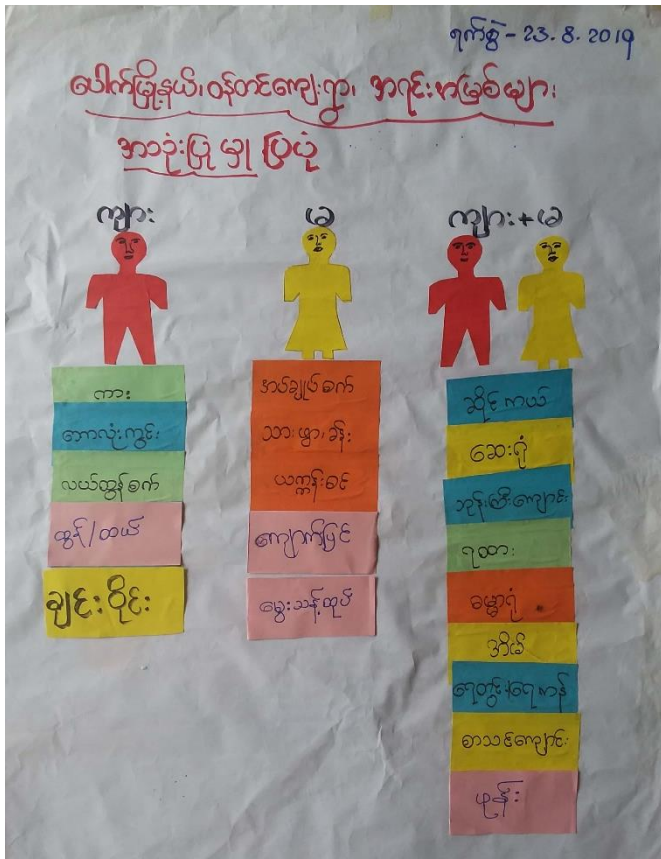 ရက်စွဲ - 23.8.2019
ပေါက်မြို့နယ်၊ ဝန်တင်ကျေးရွာ၊ အရင်းအမြစ်များ
အသုံးပြုမှုပြပုံ
ကျား
မ
ကျား+မ
ကား
ဘောလုံးကွင်း
လယ်ထွန်စက်
ထွန်/ထယ်
ချင်းဝိုင်း
အပ်ချုပ်စက်
သားဖွားခန်း
ယက္ကန်းစင်
ကျောက်ပြင်
မွေးသန့်ထုပ်
ဆိုင်ကယ်
ဆေးရုံ
ဘုန်းကြီးကျောင်း
ရထား
ဓမ္မာရုံ
အိမ်
ရေတွင်း/ရေကန်
စာသင်ကျောင်း
ဖုန်း